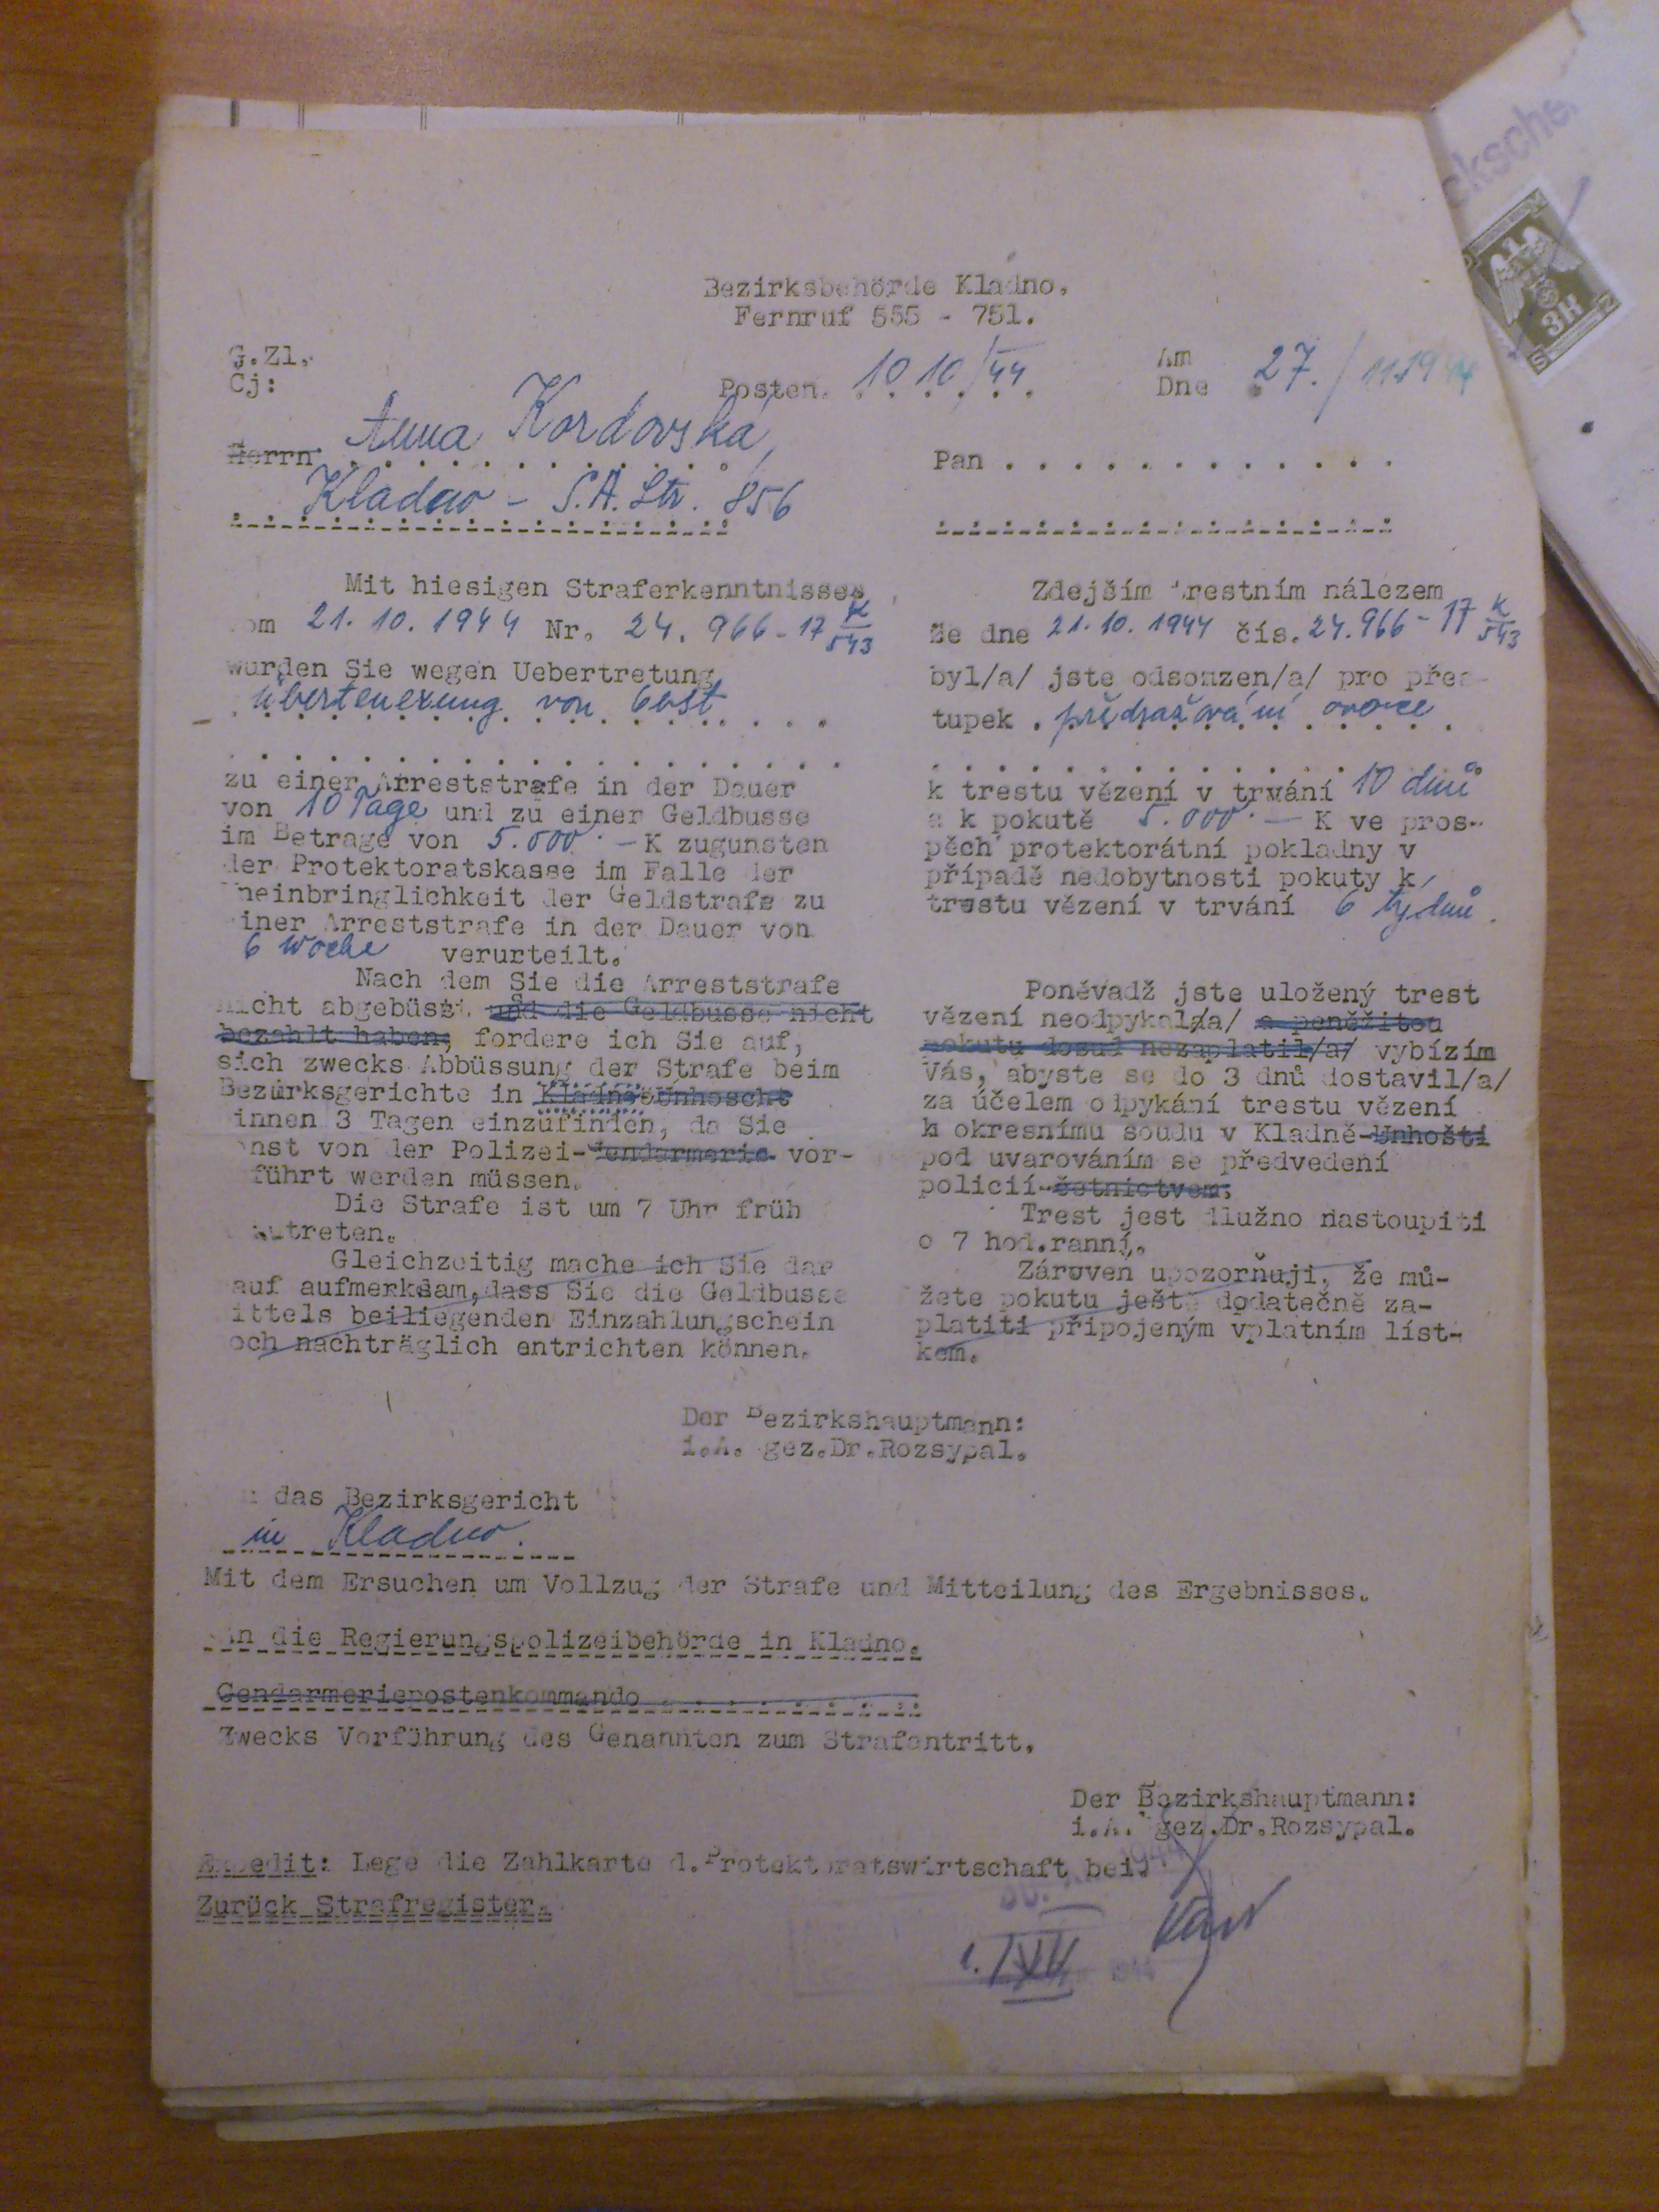 Bezirksbehörde Kladno.
Fernruf 555 - 751.
G.Zl.
Cj:
Posten. 1010/44
Am
Dne 27./11.1944
Herrn Anna Kordovská,
Kladno - S.A. Str. 856
Pan
Mit hiesigen Straferkenntnisses
om 21.10.1944 Nr. 24.966-17 K/543
wurden Sie wegen Uebertretung
überteuerung von Obst
zu einer Arreststrafe in der Dauer
von 10 Tage und zu einer Geldbusse
im Betrage von 5.000.— K zugunsten
der Protektoratskasse im Falle der
neinbringlichkeit der Geldstrafe zu
iner Arreststrafe in der Dauer von
6 Woche verurteilt.
Nach dem Sie die Arreststrafe
nicht abgebüsst und die Geldbusse nicht
bezahlt haben, fordere ich Sie auf,
sich zwecks Abbüssung der Strafe beim
Bezirksgerichte in Kladno-Unhoscht
innen 3 Tagen einzufinden, da Sie
onst von der Polizei-Gendarmerie vor-
führt werden müssen.
Die Strafe ist um 7 Uhr früh
utreten.
Gleichzeitig mache ich Sie dar
auf aufmerksam, dass Sie die Geldbusse
ittels beiliegenden Einzahlungschein
och nachträglich entrichten können.
Zdejším trestním nálezem
Ze dne 21.10.1944 čís. 24.966-17 K/543
byl/a/ jste odsouzen/a/ pro přes-
tupek předražování ovoce
k trestu vězení v trvání 10 dnů
a k pokutě 5.000.— K ve pros-
pěch protektorátní pokladny v
případě nedobytnosti pokuty k
trestu vězení v trvání 6 týdnů.
Poněvadž jste uložený trest
vězení neodpykal/a/ a peněžitou
pokutu dosud nezaplatil/a/ vybízím
Vás, abyste se do 3 dnů dostavil/a/
za účelem odpykání trestu vězení
k okresnímu soudu v Kladně-Unhošti
pod uvarováním se předvedení
policií-četnictvem.
Trest jest dlužno nastoupiti
o 7 hod.ranní.
Zároveň upozorňuji, že mů-
žete pokutu ještě dodatečně za-
platiti připojeným vplatním líst-
kem.
Der Bezirkshauptmann:
i.A. gez.Dr.Rozsypal.
das Bezirksgericht
in Kladno.
Mit dem Ersuchen um Vollzug der Strafe und Mitteilung des Ergebnisses.
An die Regierungspolizeibehörde in Kladno.
Gendarmeriepostenkommando
Zwecks Vorführung des Genannten zum Strafantritt.
Der Bezirkshauptmann:
i.A. gez.Dr.Rozsypal.
Expedit: Lege die Zahlkarte d.Protektoratswirtschaft bei.
Zurück Strafregister.
3K